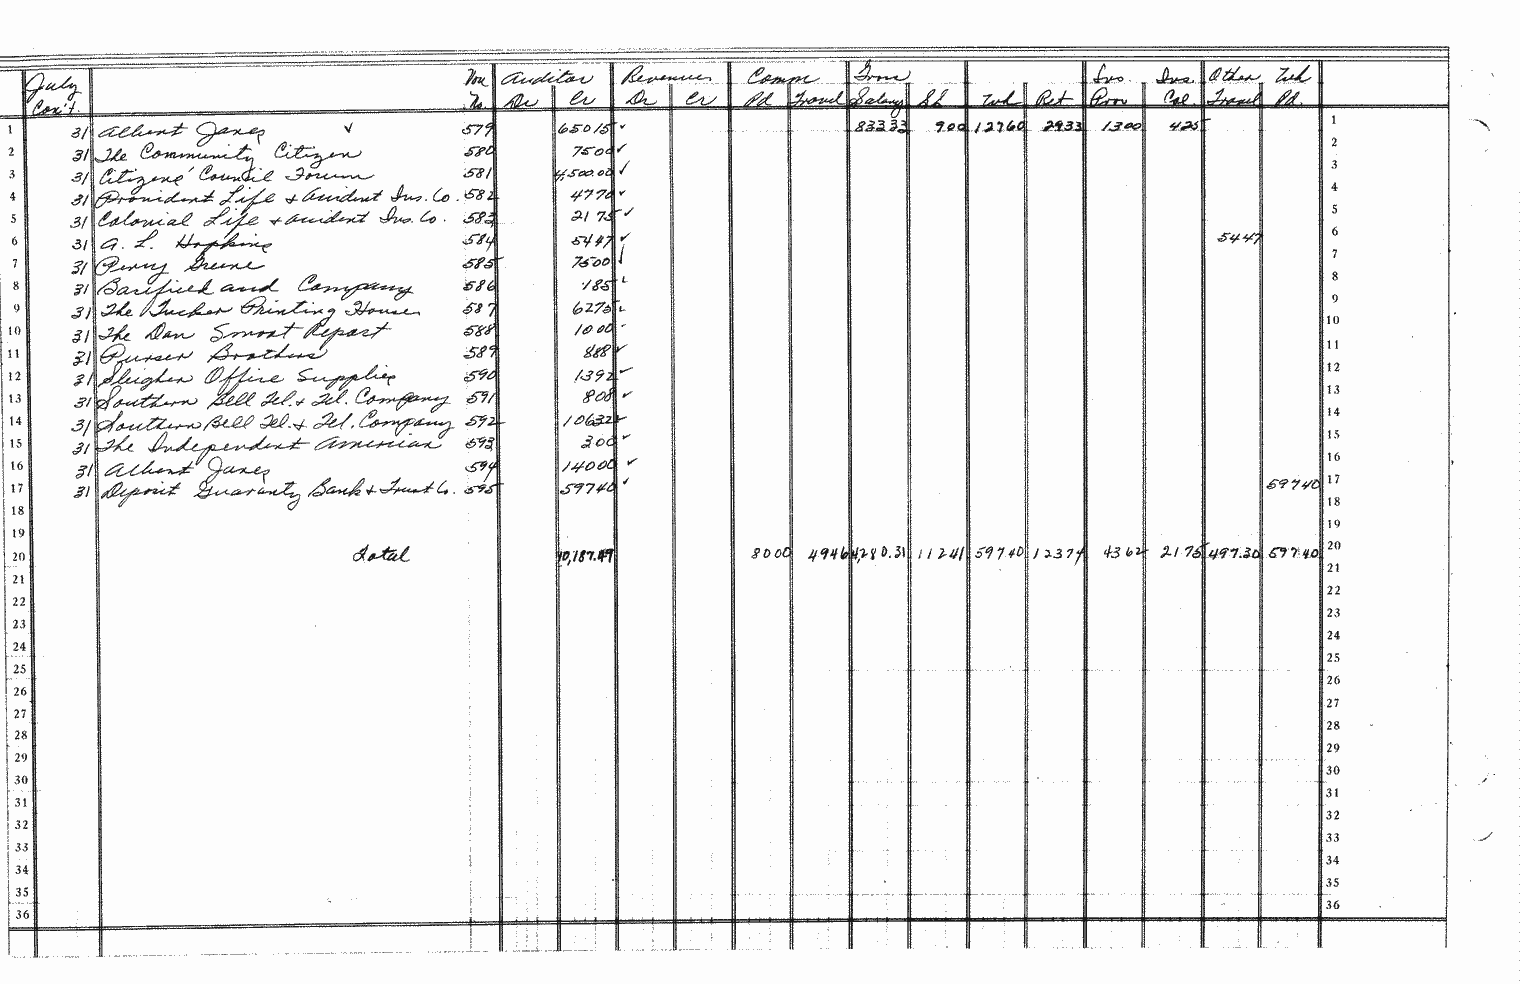 July Vou Auditor Revenues Comm Gross Ins. Ins. Other Wh
Con't. No. Dr Cr Dr Cr Pd Travel Salary SS Wh Ret Prov Col. Travel Pd.
1 31 Albert Jones ✓ 579 65015 ✓ 83333 900 12760 2933 1300 425 1
2 31 The Community Citizen 580 7500 ✓ 2
3 31 Citizens' Council Forum 581 4,500.00 ✓ 3
4 31 Provident Life & Accident Ins. Co. 582 4770 ✓ 4
5 31 Colonial Life & Accident Ins. Co. 583 2175 ✓ 5
6 31 A. L. Hopkins 584 5447 ✓ 5447 6
7 31 Percy Greene 585 7500 ✓ 7
8 31 Barefield and Company 586 185 8
9 31 The Tucker Printing House 587 6275 9
10 31 The Dan Smoot Report 588 1000 10
11 31 Purser Brothers 589 888 ✓ 11
12 31 Sleigher Office Supplies 590 1392 ✓ 12
13 31 Southern Bell Tel. & Tel. Company 591 808 ✓ 13
14 31 Southern Bell Tel. & Tel. Company 592 10632 ✓ 14
15 31 The Independent American 593 300 ✓ 15
16 31 Albert Jones 594 14000 ✓ 16
17 31 Deposit Guaranty Bank & Trust Co. 595 59740 ✓ 59740 17
18 18
19 19
20 Total 10,187.49 8000 4946 4,280.31 11241 59740 12374 4362 2175 497.30 59740 20
21 21
22 22
23 23
24 24
25 25
26 26
27 27
28 28
29 29
30 30
31 31
32 32
33 33
34 34
35 35
36 36